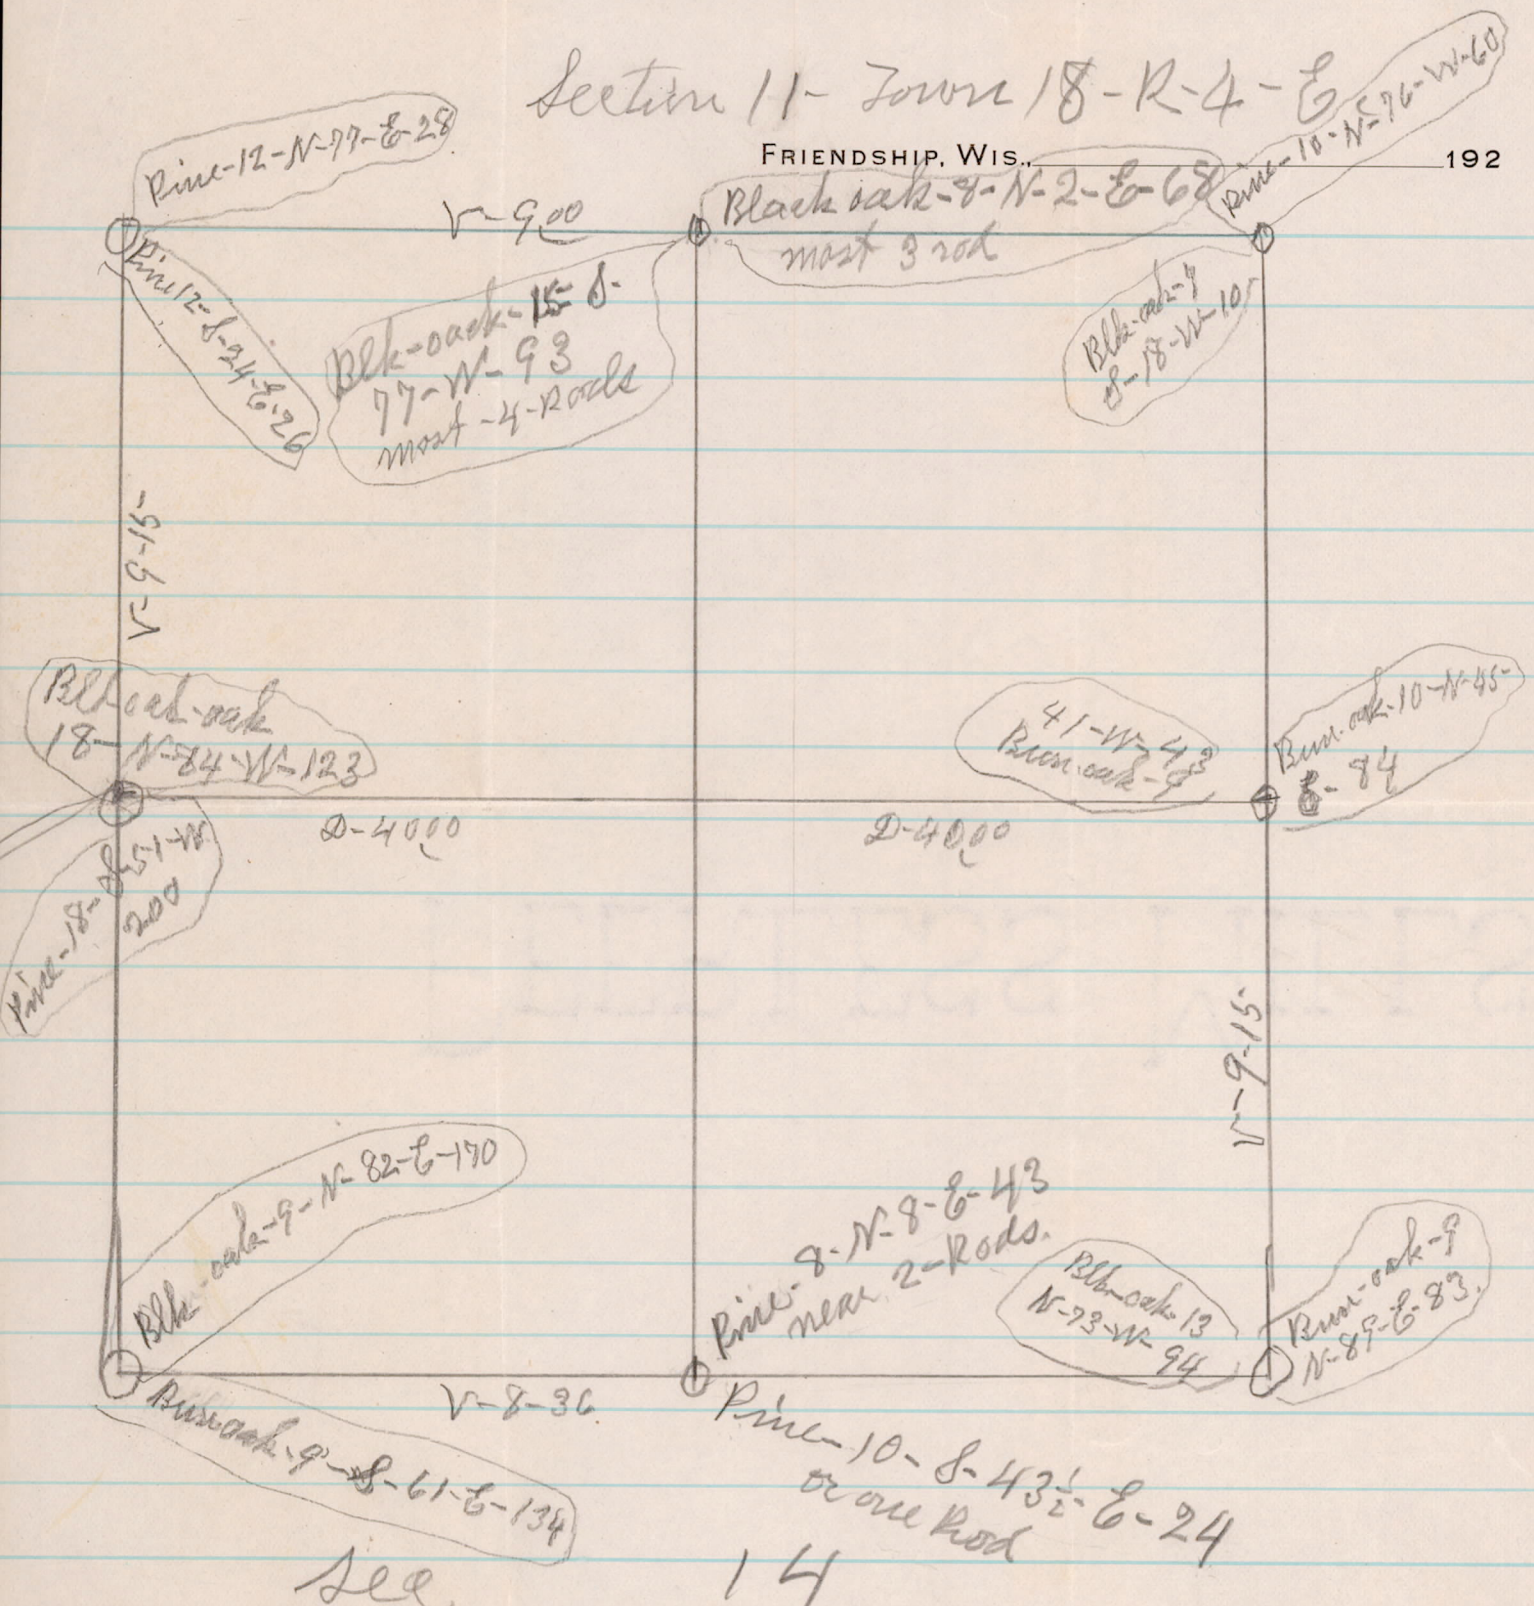 Section 11- Town 18-R-4-E
FRIENDSHIP, WIS., 192
Pine-12-N-77-E-28
V-9.00
Black oak-8-N-2-E-68
most 3 rod
Pine-10-N-76-W-60
Pine 12-S-24-E-26
Blk-oack-15-S-
77-W-93
most-4-Rods
Blk-oak-9
S-18-W-10-
V-9-15-
Blk oak-oak
18-N-84-W-123
41-W-43
Burr-oak-9
Burr-oak-10-N-45-
E-84
D-40.00
D-40.00
Pine-18-S-51-W
200
V-9-15
Blk-oak-9-N-82-E-170
Pine-8-N-8-E-43
near 2-Rods.
Blk-oak-13
N-73-W-94
Burr-oak-9
N-89-E-83.
V-8-36
Burr oak-9-S-61-E-134
Pine-10-S-43½-E-24
or one Rod
Sec. 14